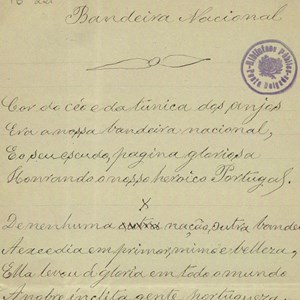 Bandeira Nacional
Bibliotheca Públic
Côr do céo e da túnica dos anjos
Era a nossa bandeira nacional,
E o seu escudo, pagina gloriosa
Honrando o nosso heroico Portugal.
X
De nenhuma outra nação, outra bandei
A excedia em primor, mimo e belleza,
Ella levou á gloria em todo o mundo
A nobre inclita gente portugueza